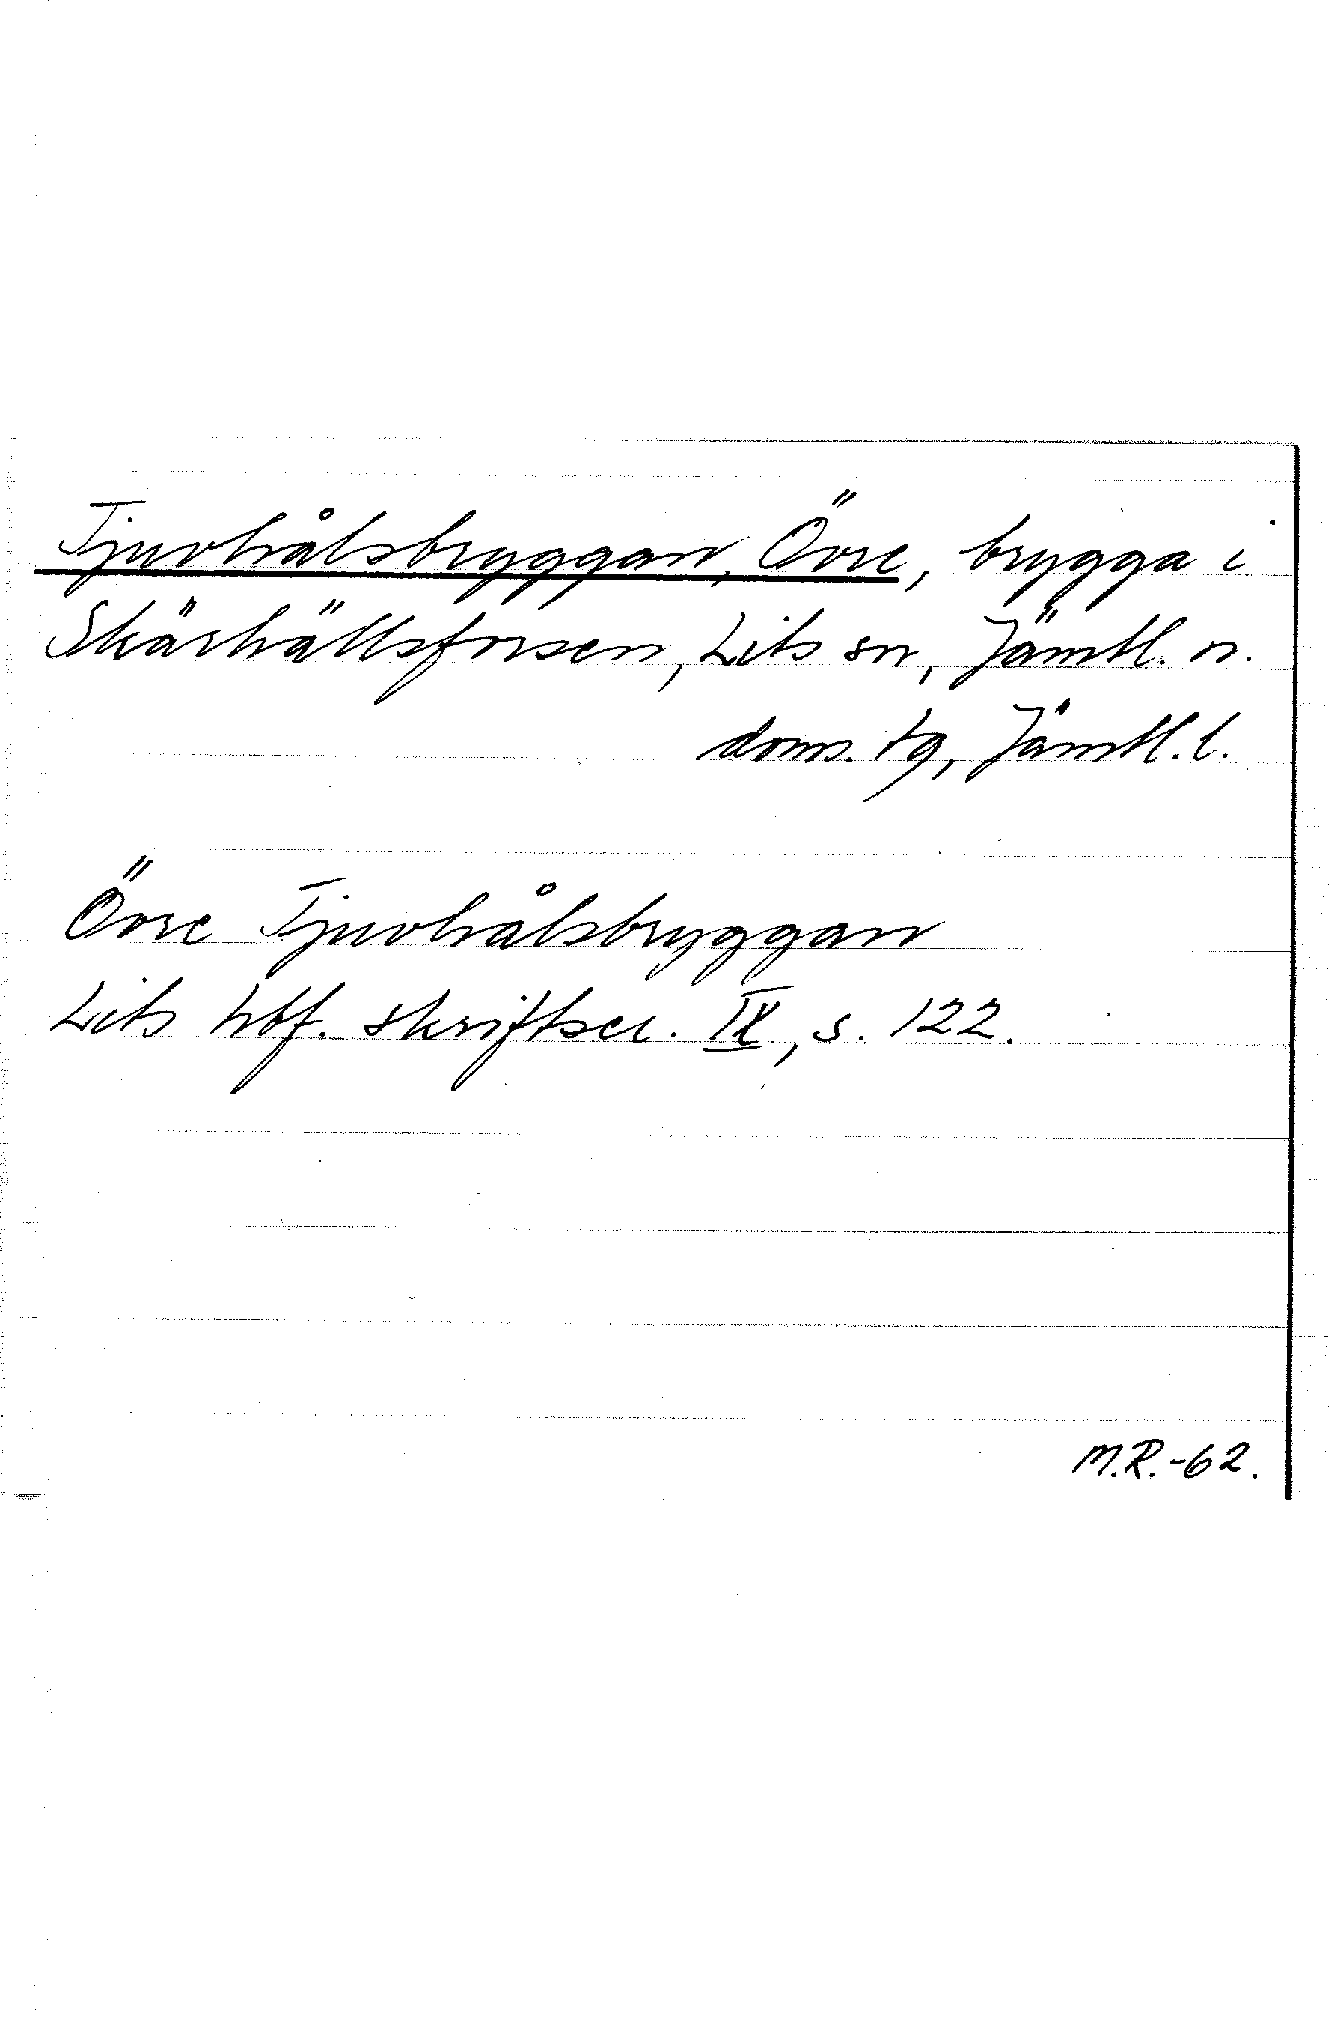 Tjuvhålsbryggan, Övre, brygga i
Skärhällsforsen, Lits sn, Jämtl. n.
doms. tg, Jämtl. l.
Övre Tjuvhålsbryggan
Lits hbf. skriftser. IX, s. 122.
M.R.-62.